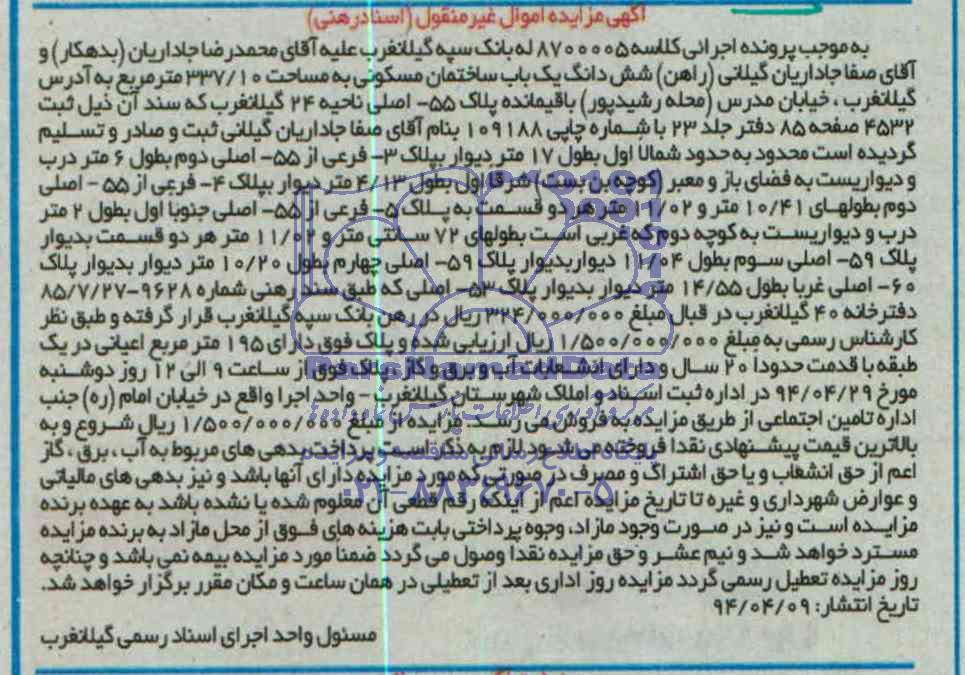 آگهی مزایده اموال غیر منقول (اسناد رهنی)
به موجب پرونده اجرائی کلاسه ۸۷۰۰۰۰۵ له بانک سپه گیلانغرب علیه آقای محمدرضا جاداریان (بدهکار) و
آقای صفا جاداریان گیلانی (راهن) شش دانگ یک باب ساختمان مسکونی به مساحت ۳۳۷/۱۰ مترمربع به آدرس
گیلانغرب ، خیابان مدرس (محله رشیدپور) باقیمانده پلاک ۵۵- اصلی ناحیه ۲۴ گیلانغرب که سند آن ذیل ثبت
۴۵۳۲ صفحه ۸۵ دفتر جلد ۲۳ با شماره چاپی ۱۰۹۱۸۸ بنام آقای صفا جاداریان گیلانی ثبت و صادر و تسلیم
گردیده است محدود به حدود شمالا اول بطول ۱۷ متر دیوار بپلاک ۳- فرعی از ۵۵- اصلی دوم بطول ۶ متر درب
و دیواریست به فضای باز و معبر (کوچه بن بست) شرقا اول بطول ۴/۱۳ متر دیوار بپلاک ۴- فرعی از ۵۵ - اصلی
دوم بطولهای ۱۰/۴۱ متر و ۱۱/۰۲ متر هر دو قسمت به پلاک ۵- فرعی از ۵۵- اصلی جنوبا اول بطول ۲ متر
درب و دیواریست به کوچه دوم که غربی است بطولهای ۷۲ سانتی متر و ۱۱/۰۲ متر هر دو قسمت بدیوار
پلاک ۵۹- اصلی سوم بطول ۱۱/۰۴ دیوار بدیوار پلاک ۵۹- اصلی چهارم بطول ۱۰/۲۰ متر دیوار بدیوار پلاک
۶۰- اصلی غربا بطول ۱۴/۵۵ متر دیوار بدیوار پلاک ۵۳- اصلی که طبق سند رهنی شماره ۹۶۲۸-۸۵/۷/۲۷
دفترخانه ۴۰ گیلانغرب در قبال مبلغ ۳۲۴/۰۰۰/۰۰۰ ریال در رهن بانک سپه گیلانغرب قرار گرفته و طبق نظر
کارشناس رسمی به مبلغ ۱/۵۰۰/۰۰۰/۰۰۰ ریال ارزیابی شده و پلاک فوق دارای ۱۹۵ متر مربع اعیانی در یک
طبقه با قدمت حدودا ۲۰ سال و دارای انشعابات آب و برق و گاز. پلاک فوق از ساعت ۹ الی ۱۲ روز دوشنبه
مورخ ۹۴/۰۴/۲۹ در اداره ثبت اسناد و املاک شهرستان گیلانغرب - واحد اجرا واقع در خیابان امام (ره) جنب
اداره تامین اجتماعی از طریق مزایده به فروش می رسد. مزایده از مبلغ ۱/۵۰۰/۰۰۰/۰۰۰ ریال شروع و به
بالاترین قیمت پیشنهادی نقدا فروخته می شود لازم به ذکر است پرداخت بدهی های مربوط به آب ، برق ، گاز
اعم از حق انشعاب و یا حق اشتراک و مصرف در صورتی که مورد مزایده دارای آنها باشد و نیز بدهی های مالیاتی
و عوارض شهرداری و غیره تا تاریخ مزایده اعم از اینکه رقم قطعی آن معلوم شده یا نشده باشد به عهده برنده
مزایده است و نیز در صورت وجود مازاد، وجوه پرداختی بابت هزینه های فوق از محل مازاد به برنده مزایده
مسترد خواهد شد و نیم عشر و حق مزایده نقدا وصول می گردد ضمنا مورد مزایده بیمه نمی باشد و چنانچه
روز مزایده تعطیل رسمی گردد مزایده روز اداری بعد از تعطیلی در همان ساعت و مکان مقرر برگزار خواهد شد.
تاریخ انتشار: ۹۴/۰۴/۰۹
مسئول واحد اجرای اسناد رسمی گیلانغرب